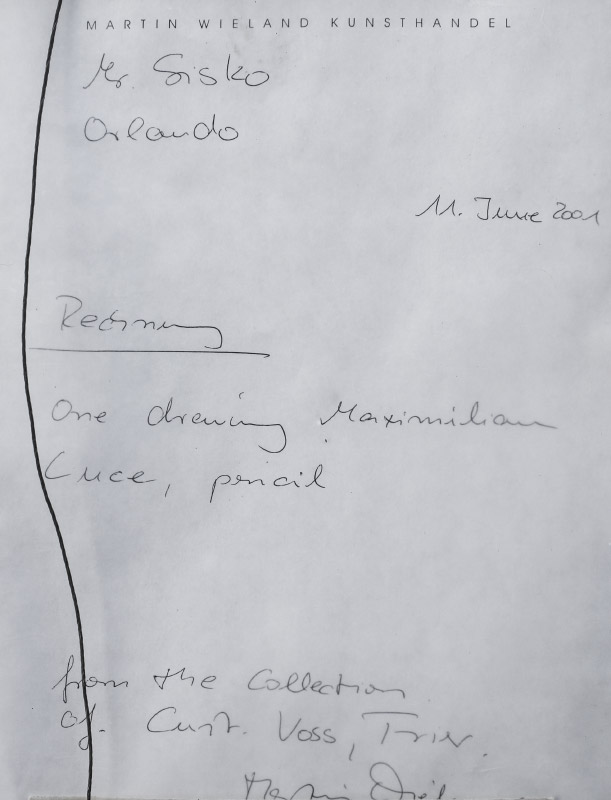 MARTIN WIELAND KUNSTHANDEL
Mr. Sisko
Orlando
11. June 2001
Rechnung
One drawing Maximilian
Luce, pencil
from the Collection
of. Voss, Trier.
Martin